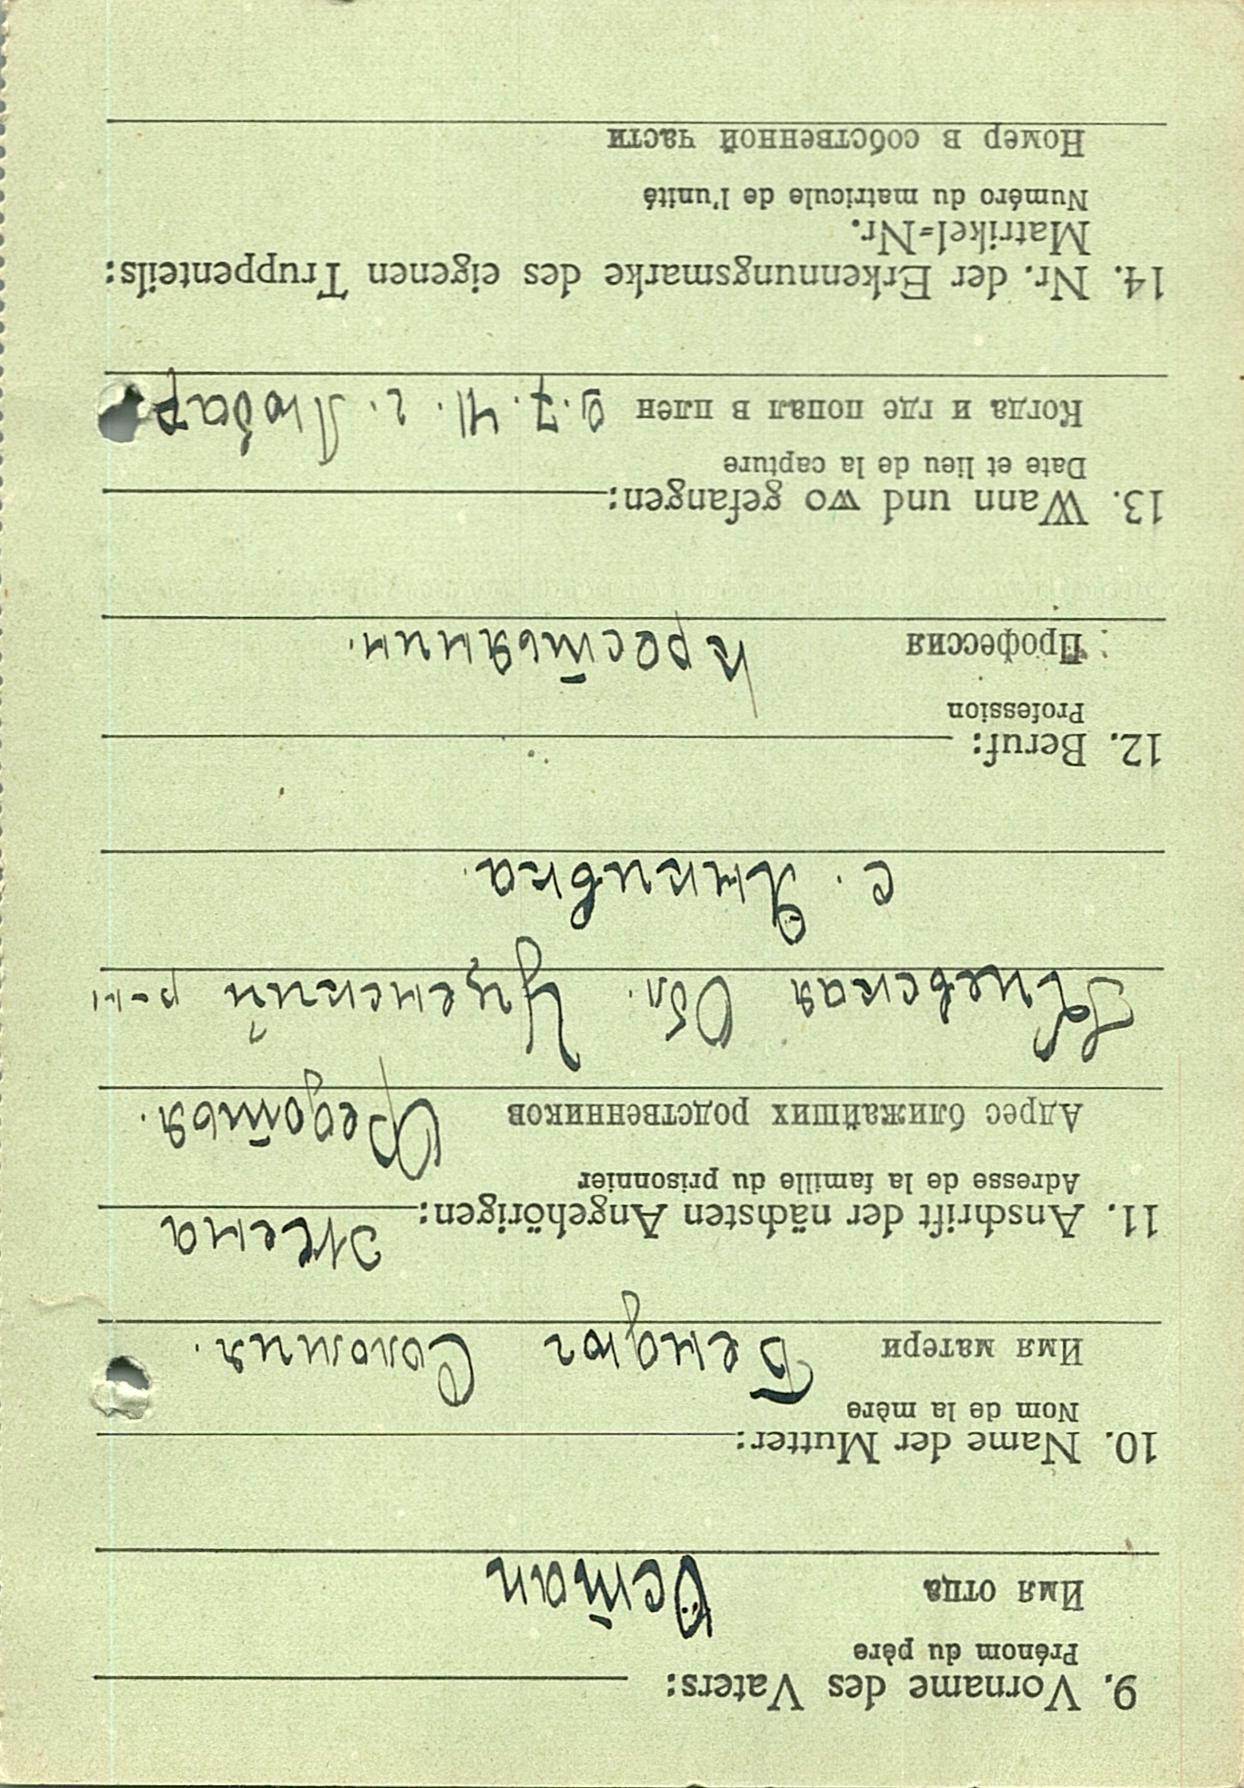 9. Vorname des Vaters:
Prénom du père
Имя отца Остап
10. Name der Mutter:
Nom de la mère
Имя матери Бендюг Соломия.
11. Anschrift der nächsten Angehörigen: Жена
Adresse de la famille du prisonnier
Адрес ближайших родственников Федотья.
Киевская Обл. р-н
с.
12. Beruf:
Profession
Профессия крестьянин.
13. Wann und wo gefangen:
Date et lieu de la capture
Когда и где попал в плен 9.7.41. г. Любар
14. Nr. der Erkennungsmarke des eigenen Truppenteils:
Matrikel-Nr.
Numéro du matricule de l'unité
Номер в собственной части